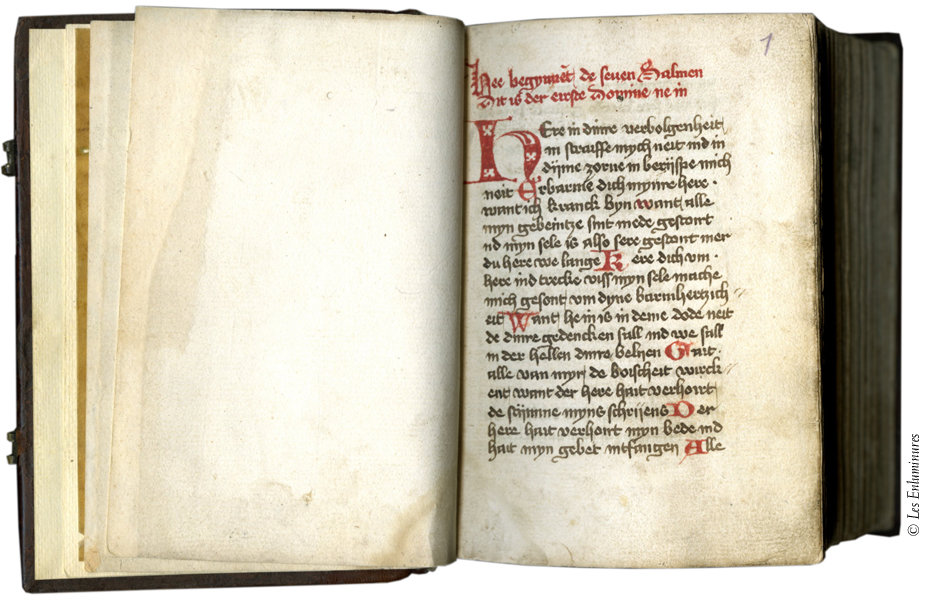 1
Hee begynnēt de seven Salmen
Dit is der eirste Domine ne in
HEre in dinre verbolgenheit
in strauffe mych neit ind in
dijme zorne in berijspe mich
neit Erbarme dich mynre here ·
want ich kranck byn want alle
myn gebeintze sint mede gestoirt
nd myn sele is also sere gestoirt mer
du here we lange Kere dich vm ·
here ind trecke viss myn sele mache
mich gesont vm dyne barmhertzich
eit Want he in is in deme dode neit
de dinre gedencken sall ind we sall
in der hellen dinre belyen Gait ·
alle van myr de boischeit wirck
ent want der here hait verhoirt
de stijmme myns schrijens Der
here hait verhoirt myn bede ind
hait myn gebet intfangen Alle
© Les Enluminures